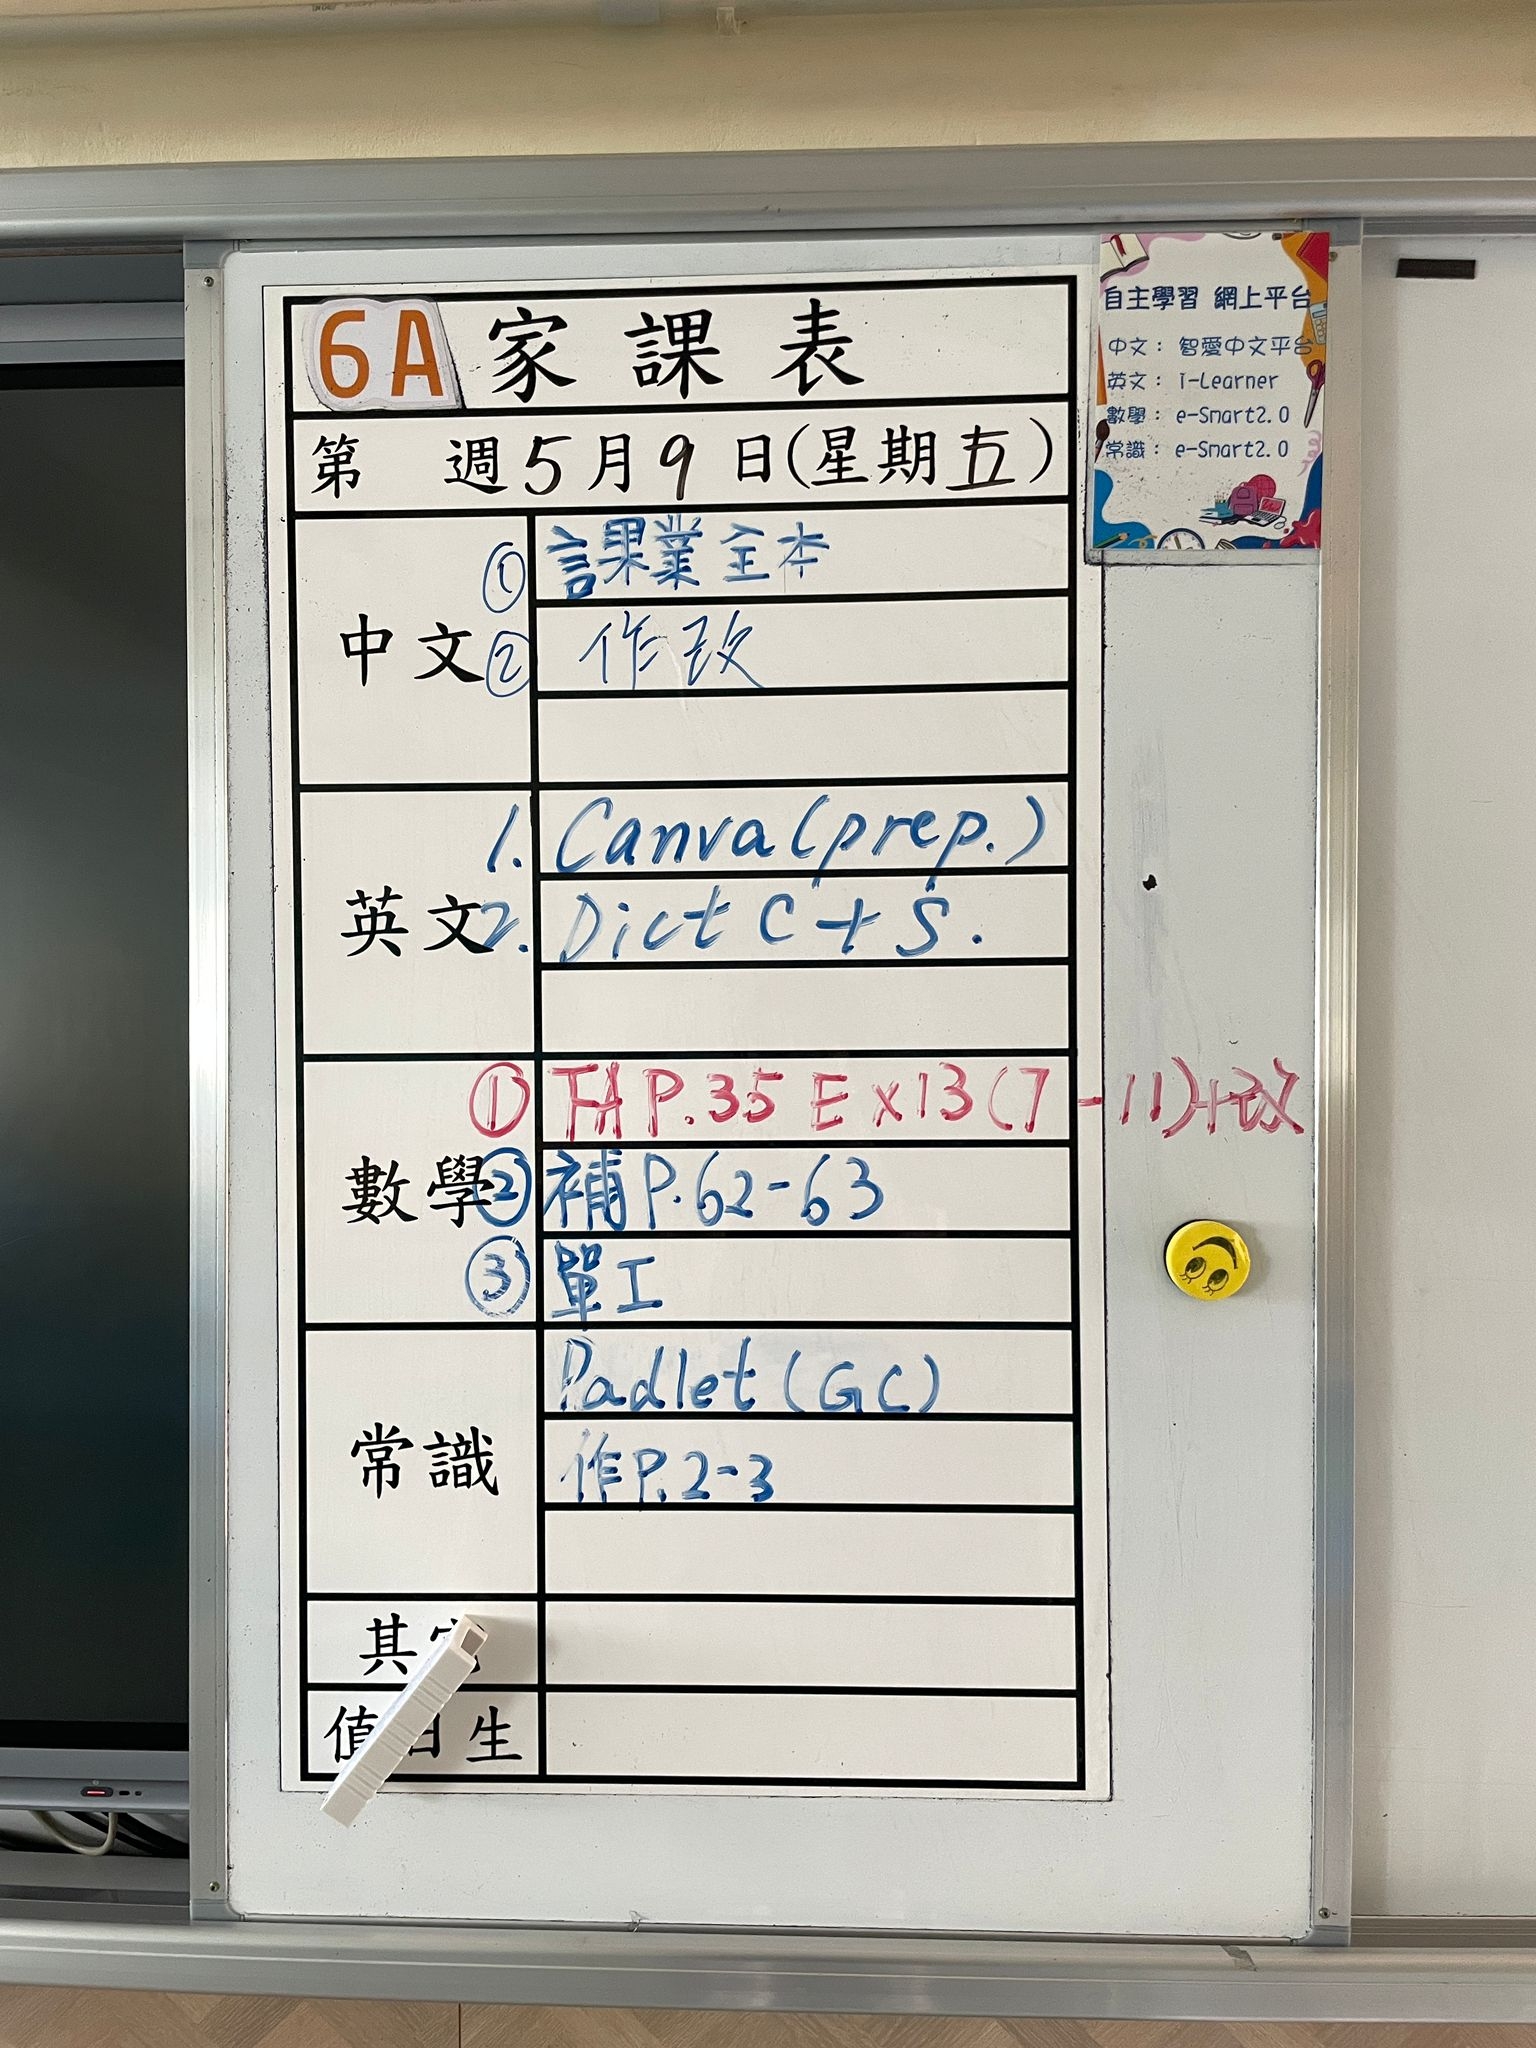 6A 家課表
第 週5月9日(星期五)
中文
① 課業全本
② 作改
英文
1. Canva (prep.)
2. Dict C + S.
數學
① TA P.35 Ex13 (7-11)+改
② 補 P.62-63
③ 單工
常識
Padlet (GC)
作P.2-3
其
值日生
自主學習 網上平台
中文： 智愛中文平台
英文： i-Learner
數學： e-Smart2.0
常識： e-Smart2.0